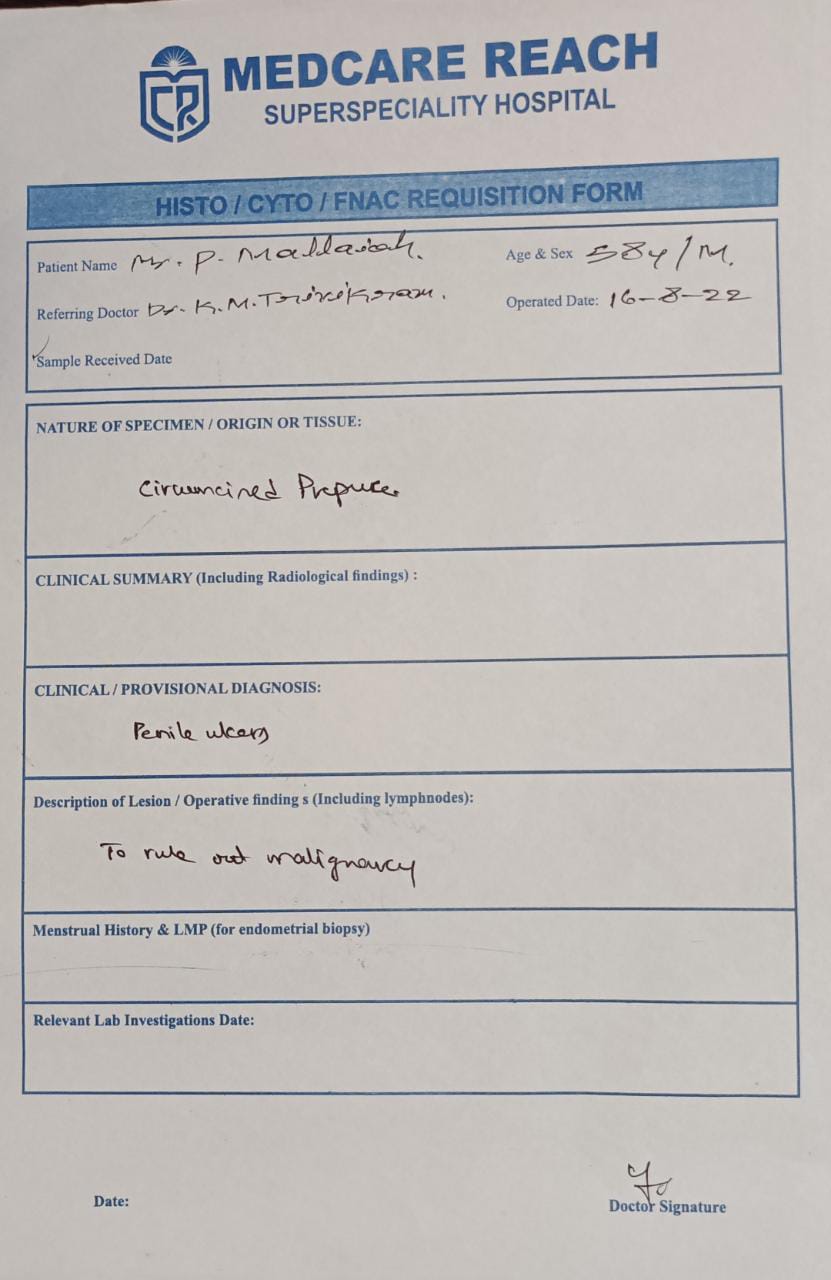 MEDCARE REACH
SUPERSPECIALITY HOSPITAL
HISTO / CYTO / FNAC REQUISITION FORM
Patient Name Mr. P. Mallaiah. Age & Sex 58y/M.
Referring Doctor Dr. K. M. Trivikram. Operated Date: 16-8-22
Sample Received Date
NATURE OF SPECIMEN / ORIGIN OR TISSUE:
Circumcined Prepuce
CLINICAL SUMMARY (Including Radiological findings) :
CLINICAL / PROVISIONAL DIAGNOSIS:
Penile ulcers
Description of Lesion / Operative finding s (Including lymphnodes):
To rule out malignancy
Menstrual History & LMP (for endometrial biopsy)
Relevant Lab Investigations Date:
Date:
Doctor Signature